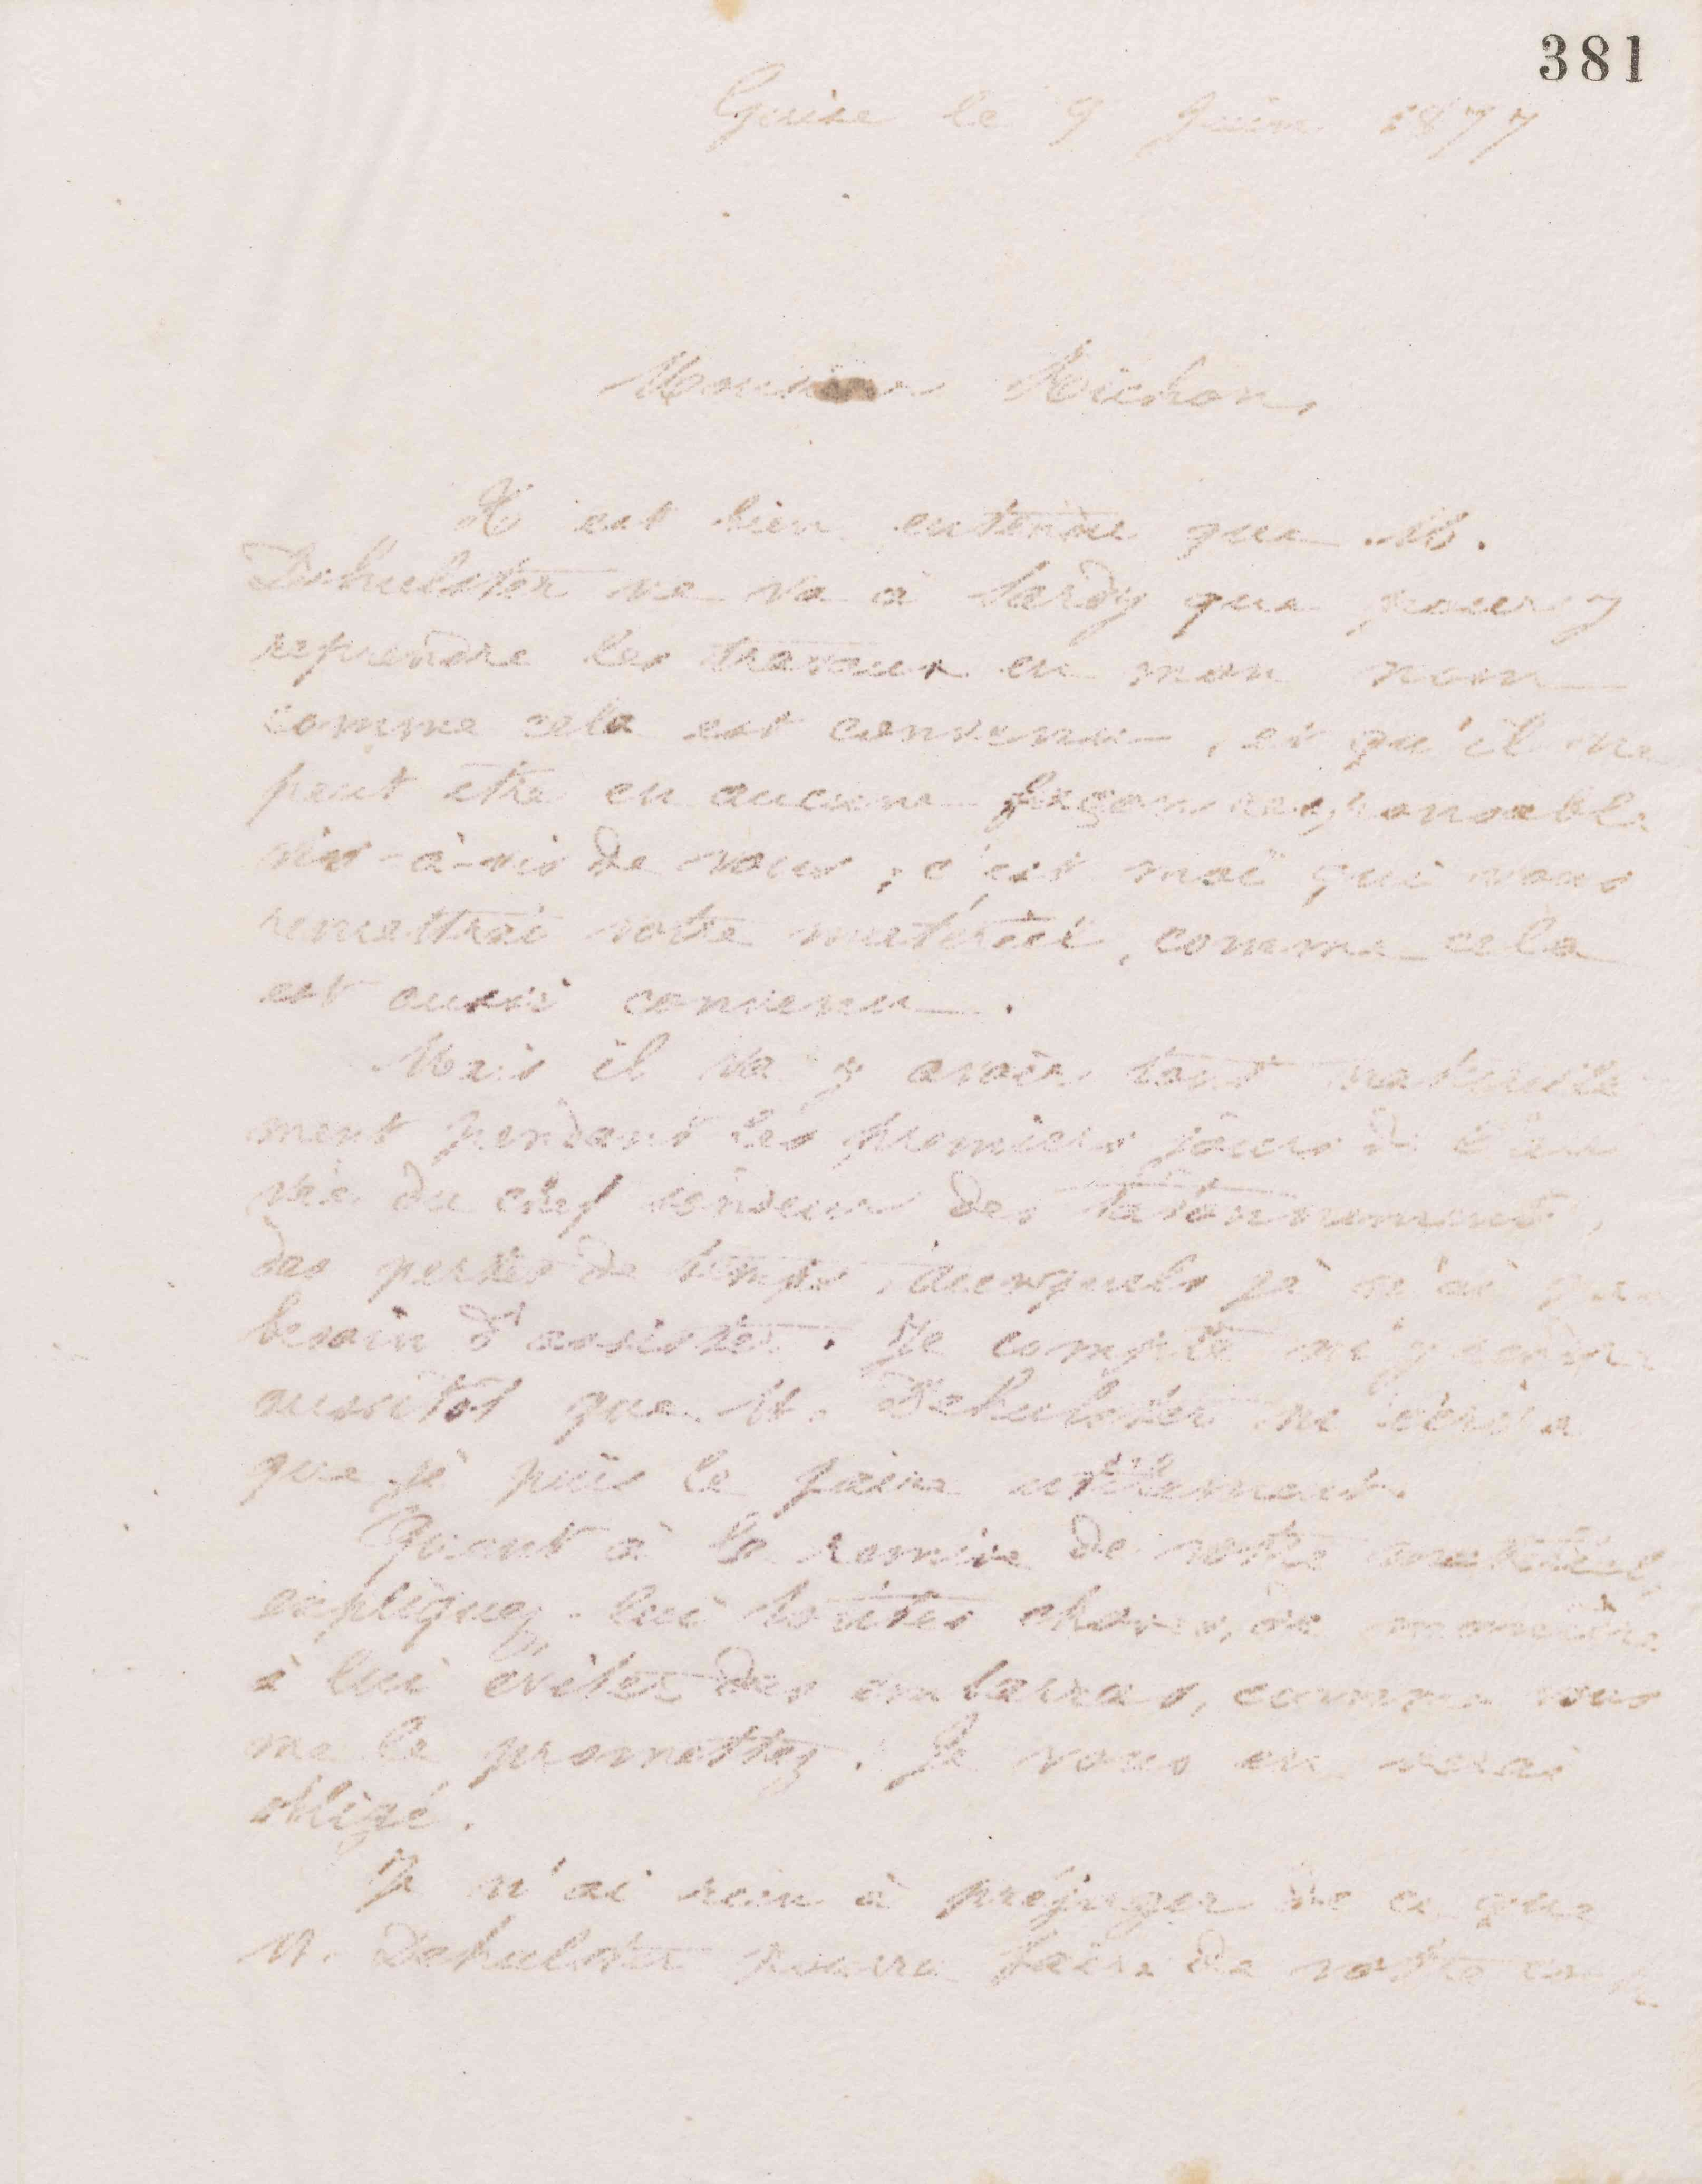 381
Guise le 9 Juin 1877
Monsieur
Il est bien entendu que M.
Dehulster ne va à Lardy que pour y
reprendre les travaux en mon nom
comme cela est convenu, et qu'il ne
peut être en aucune façon responsable
vis-à-vis de vous ; c'est moi qui vous
remettrai votre matériel, comme cela
est aussi convenu.
Mais il va y avoir tout naturelle
ment pendant les premiers jours de l'arri
vée du chef sondeur des tatonnements,
des pertes de temps, auxquels je n'ai pas
besoin d'assister. Je compte m'y rendre
aussitôt que M. Dehulster m'écrira
que je puis le faire utilement.
Quant à la remise de votre matériel,
expliquez-lui toutes choses, de manière
à lui éviter des embarras, comme vous
me le promettez. Je vous en serai
obligé.
Je n'ai rien à préjuger de ce que
M. Dehulster pourra faire de votre